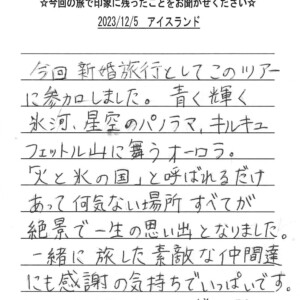 ☆今回の旅で印象に残ったことをお聞かせください☆
2023/12/5　アイスランド
今回 新婚旅行としてこのツアー
に参加しました。青く輝く
氷河、星空のパノラマ、キルキュ
フェットル山に舞うオーロラ。
「火と氷の国」と呼ばれるだけ
あって何気ない場所すべてが
絶景で一生の思い出となりました。
一緒に旅した素敵な仲間達
にも感謝の気持ちでいっぱいです。